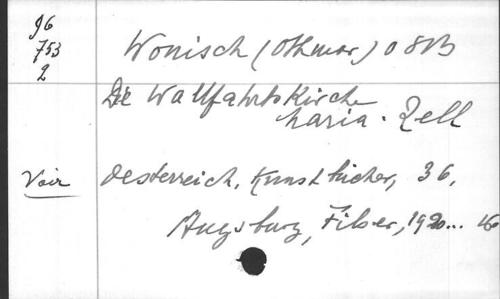 96
753
2
Wonisch (Othmar) OSB
Die Wallfahrtskirche
Maria-Zell
Voir
Oesterreich. Kunstbücher, 36.
Augsburg, Filser, 1920... 16